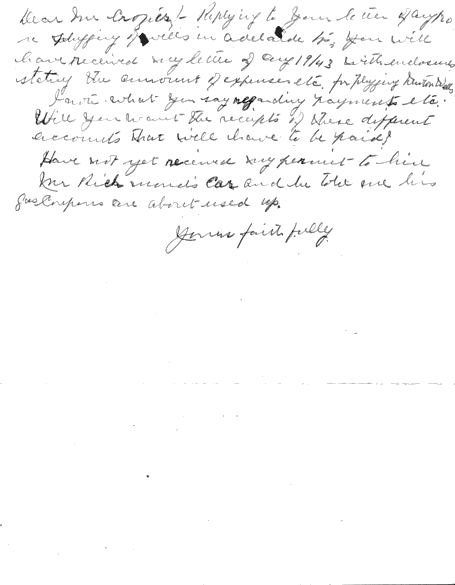 Dear Mr Crozier :- Replying to your letter of Aug 20
re plugging of wells in Adelaide St, you will
have received my letter of Aug 19/43 with enclosures
stating the amount of expenses etc. for plugging Wells
what you say regarding payments etc.
Will you want the receipts of these different
accounts that will have to be paid?
Have not yet received my permit to hire
Mr Richmond's car and he told me his
gas coupons are about used up.
Yours faithfully